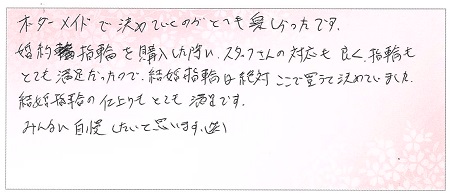 オーダーメイドで決めていくのがとても楽しかったです。
婚約指輪を購入した際に、スタッフさんの対応も良く、指輪も
とても満足だったので、結婚指輪は絶対ここで買うと決めていました。
結婚指輪の仕上りもとても満足です。
みんなに自慢したいと思います。(笑)